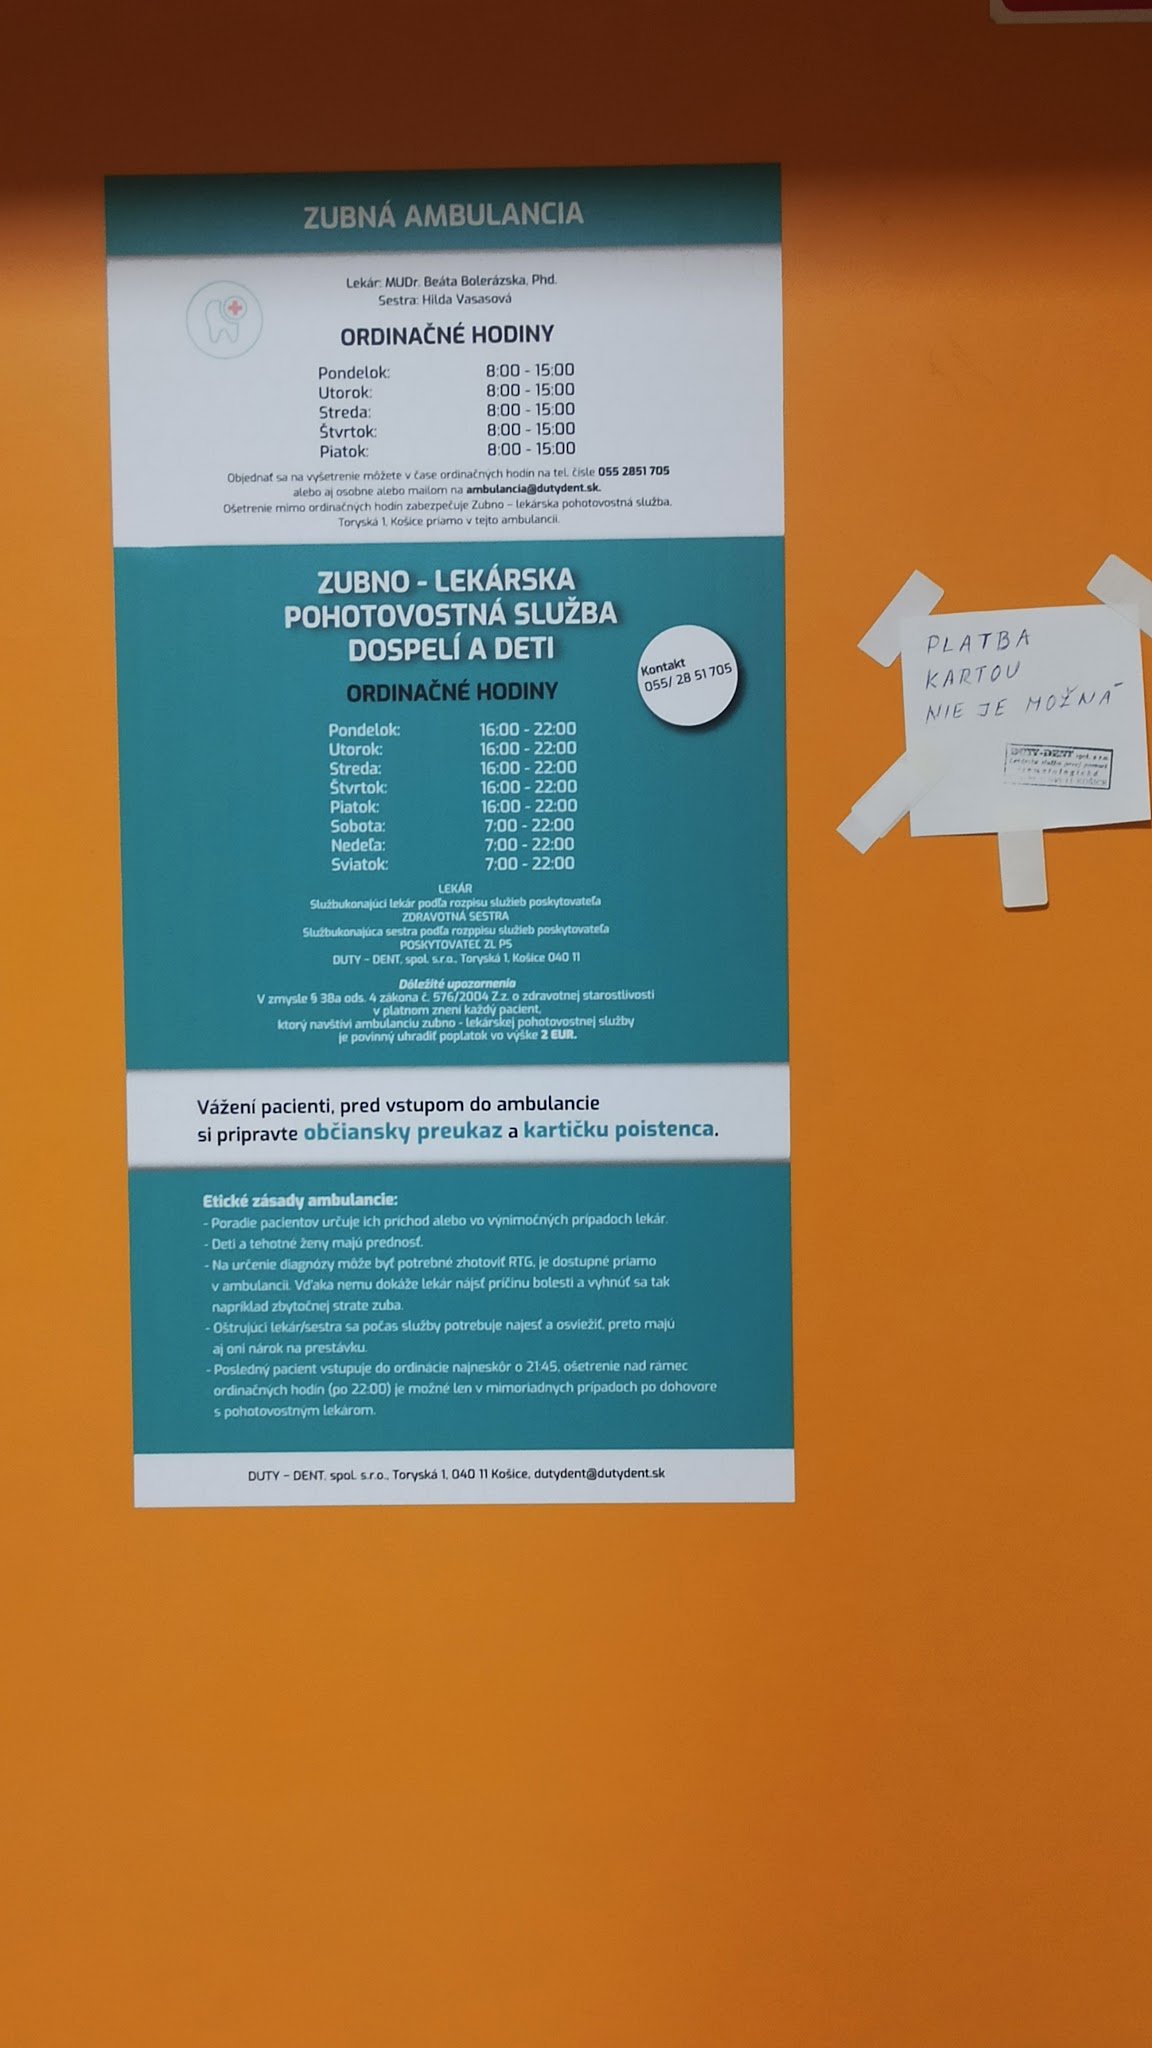 ZUBNÁ AMBULANCIA
Lekár: MUDr. Beáta Bolerázska, Phd.
Sestra: Hilda Vasasová
ORDINAČNÉ HODINY
Pondelok: 8:00 - 15:00
Utorok: 8:00 - 15:00
Streda: 8:00 - 15:00
Štvrtok: 8:00 - 15:00
Piatok: 8:00 - 15:00
Objednať sa na vyšetrenie môžete v čase ordinačných hodín na tel. čísle 055 2851 705
alebo aj osobne alebo mailom na ambulancia@dutydent.sk.
Ošetrenie mimo ordinačných hodín zabezpečuje Zubno – lekárska pohotovostná služba,
Toryská 1, Košice priamo v tejto ambulancii.
ZUBNO - LEKÁRSKA
POHOTOVOSTNÁ SLUŽBA
DOSPELÍ A DETI
Kontakt
055/ 28 51 705
ORDINAČNÉ HODINY
Pondelok: 16:00 - 22:00
Utorok: 16:00 - 22:00
Streda: 16:00 - 22:00
Štvrtok: 16:00 - 22:00
Piatok: 16:00 - 22:00
Sobota: 7:00 - 22:00
Nedeľa: 7:00 - 22:00
Sviatok: 7:00 - 22:00
LEKÁR
Službukonajúci lekár podľa rozpisu služieb poskytovateľa
ZDRAVOTNÁ SESTRA
Službukonajúca sestra podľa rozppisu služieb poskytovateľa
POSKYTOVATEĽ ZL PS
DUTY – DENT, spol. s.r.o., Toryská 1, Košice 040 11
Dôležité upozornenia
V zmysle § 38a ods. 4 zákona č. 576/2004 Z.z. o zdravotnej starostlivosti
v platnom znení každý pacient,
ktorý navštívi ambulanciu zubno - lekárskej pohotovostnej služby
je povinný uhradiť poplatok vo výške 2 EUR.
Vážení pacienti, pred vstupom do ambulancie
si pripravte občiansky preukaz a kartičku poistenca.
Etické zásady ambulancie:
- Poradie pacientov určuje ich príchod alebo vo výnimočných prípadoch lekár.
- Deti a tehotné ženy majú prednosť.
- Na určenie diagnózy môže byť potrebné zhotoviť RTG, je dostupné priamo
v ambulancii. Vďaka nemu dokáže lekár nájsť príčinu bolesti a vyhnúť sa tak
napríklad zbytočnej strate zuba.
- Oštrujúci lekár/sestra sa počas služby potrebuje najesť a osviežiť, preto majú
aj oni nárok na prestávku.
- Posledný pacient vstupuje do ordinácie najneskôr o 21:45, ošetrenie nad rámec
ordinačných hodín (po 22:00) je možné len v mimoriadnych prípadoch po dohovore
s pohotovostným lekárom.
DUTY – DENT, spol. s.r.o., Toryská 1, 040 11 Košice, dutydent@dutydent.sk
PLATBA
KARTOU
NIE JE MOŽNÁ
DUTY-DENT spol. s r.o.
Lekárska služba prvej pomoci
KOŠICE